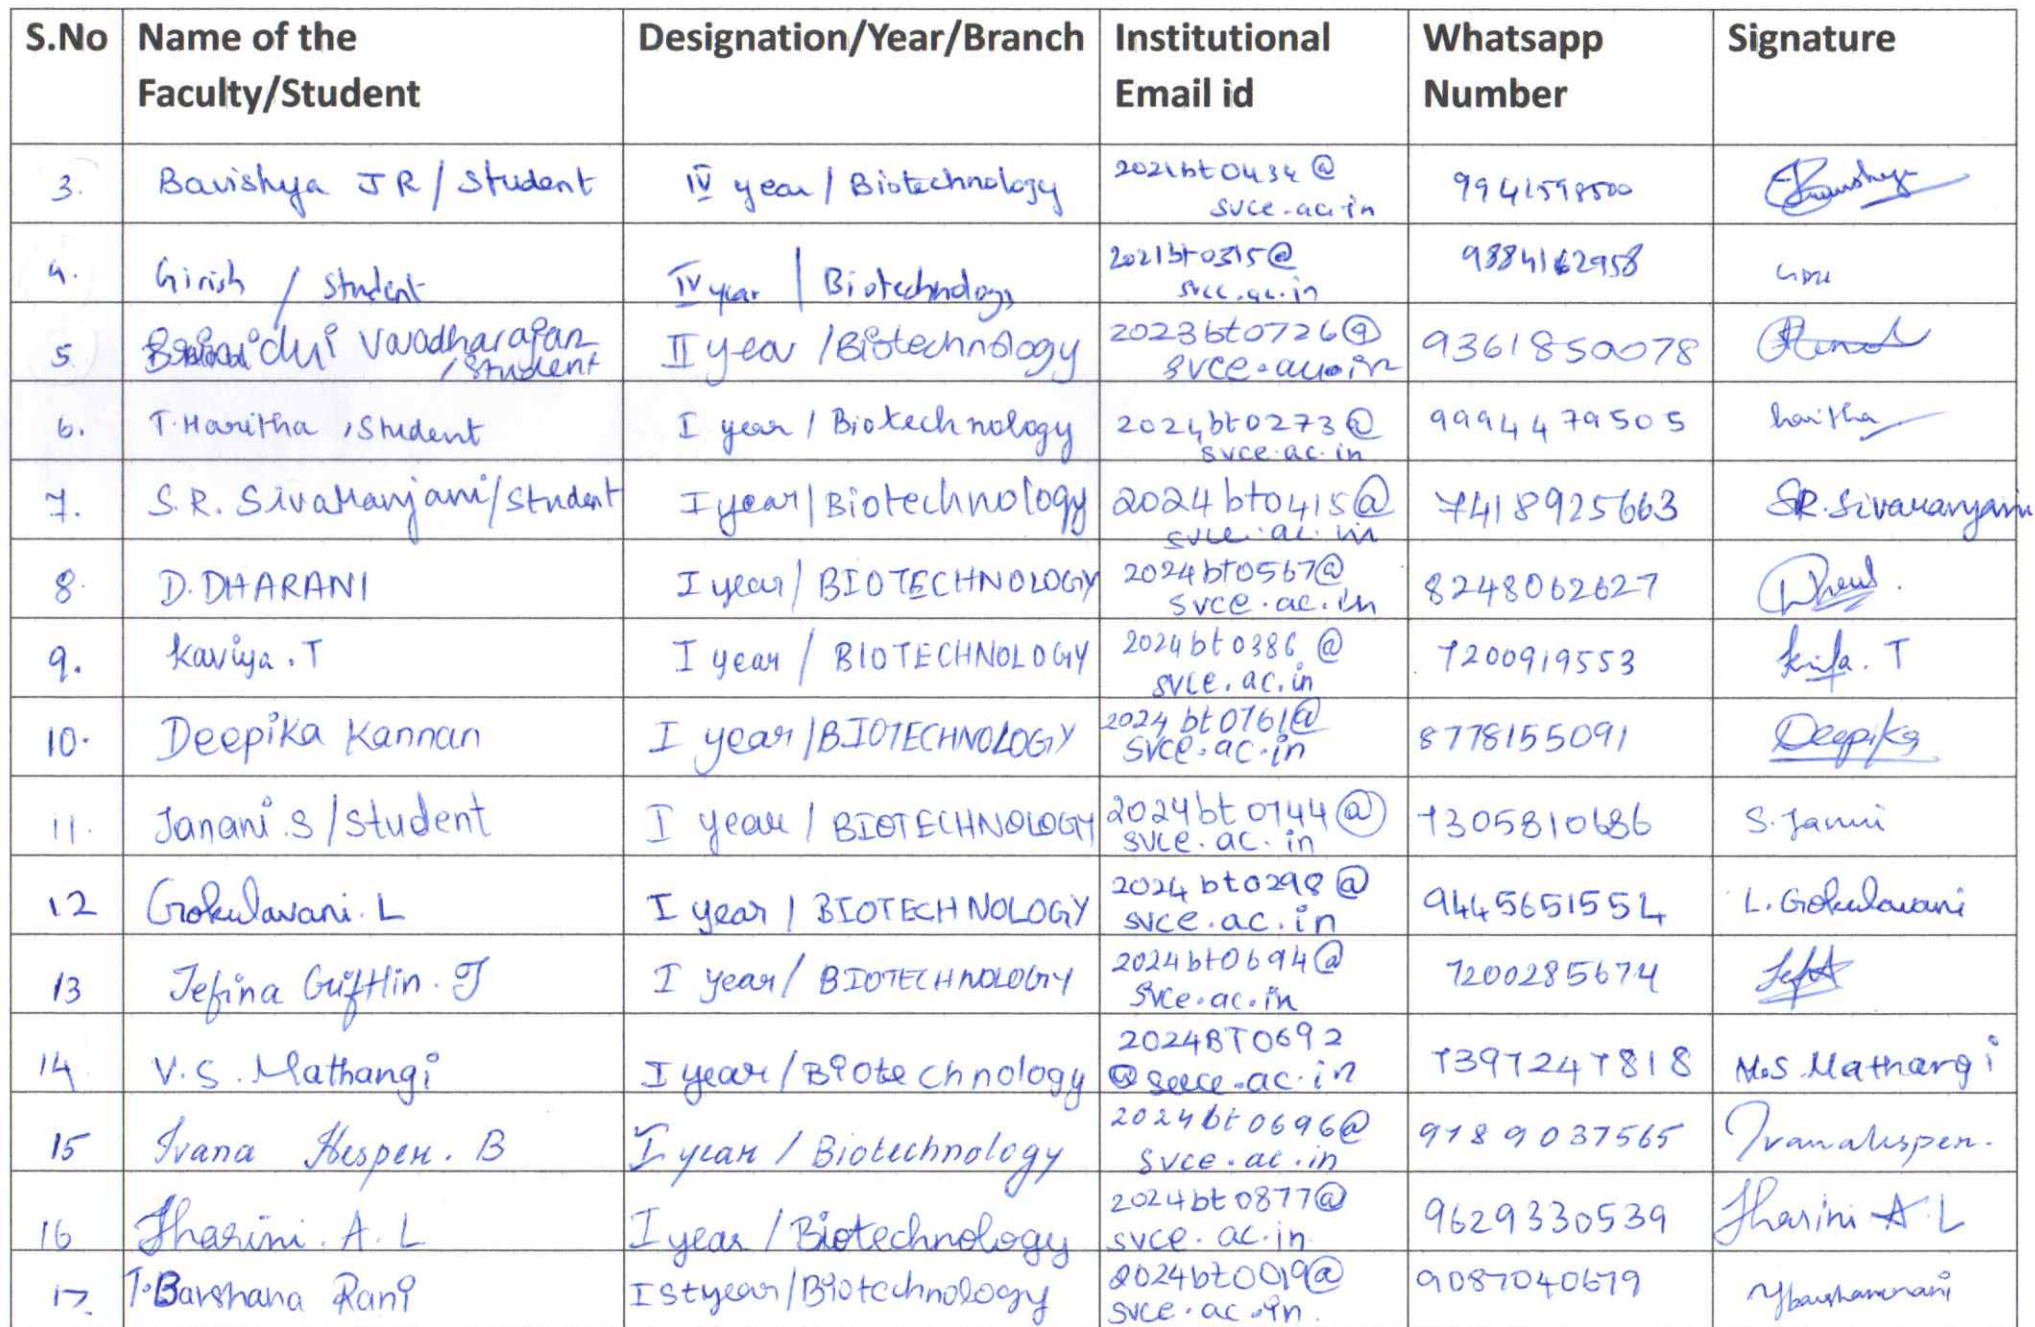 S.No Name of the Faculty/Student Designation/Year/Branch Institutional Email id Whatsapp Number Signature
3. Bavishya J R / Student IV year / Biotechnology 2021bt0434@ svce.ac.in 9941598500
4. Girish / Student IV year / Biotechnology 2021bt0315@ svce.ac.in 9884162958
5. Varadharajan / Student II year / Biotechnology 2023bt0726@ 9361850078
6. T. Haritha , Student I year / Biotechnology 2024bt0273@ svce.ac.in 9994479505 haritha
7. S.R. Sivaranjani / Student I year / Biotechnology 2024bt0415@ svce.ac.in 7418925663 S.R. Sivaranjani
8. D. DHARANI I year / BIOTECHNOLOGY 2024bt0567@ svce.ac.in 8248062627
9. Kaviya . T I year / BIOTECHNOLOGY 2024bt0386@ svce.ac.in 7200919553
10. Deepika Kannan I year / BIOTECHNOLOGY 2024bt0761@ svce.ac.in 8778155091 Deepika
11. Janani .S / Student I year / BIOTECHNOLOGY 2024bt0744@ svce.ac.in 7305810686
12 Gokulavani. L I year / BIOTECHNOLOGY 2024bt0298@ svce.ac.in 9445651554 L. Gokulavani
13 Jefina Griftlin . J I year / BIOTECHNOLOGY 2024bt0694@ svce.ac.in 7200285674
14 V.S. Mathangi I year / Biotechnology 2024BT0692 @ svece.ac.in 7397247818 Mathangi
15 Ivana Hespen. B I year / Biotechnology 2024bt0696@ svce.ac.in 9789037565 Ivanahespen.
16 Tharini . A. L I year / Biotechnology 2024bt0877@ svce.ac.in 9629330539 Tharini A L
17. Barshana Rani Ist year / Biotechnology 2024bt0019@ svce.ac.in. 9087040679